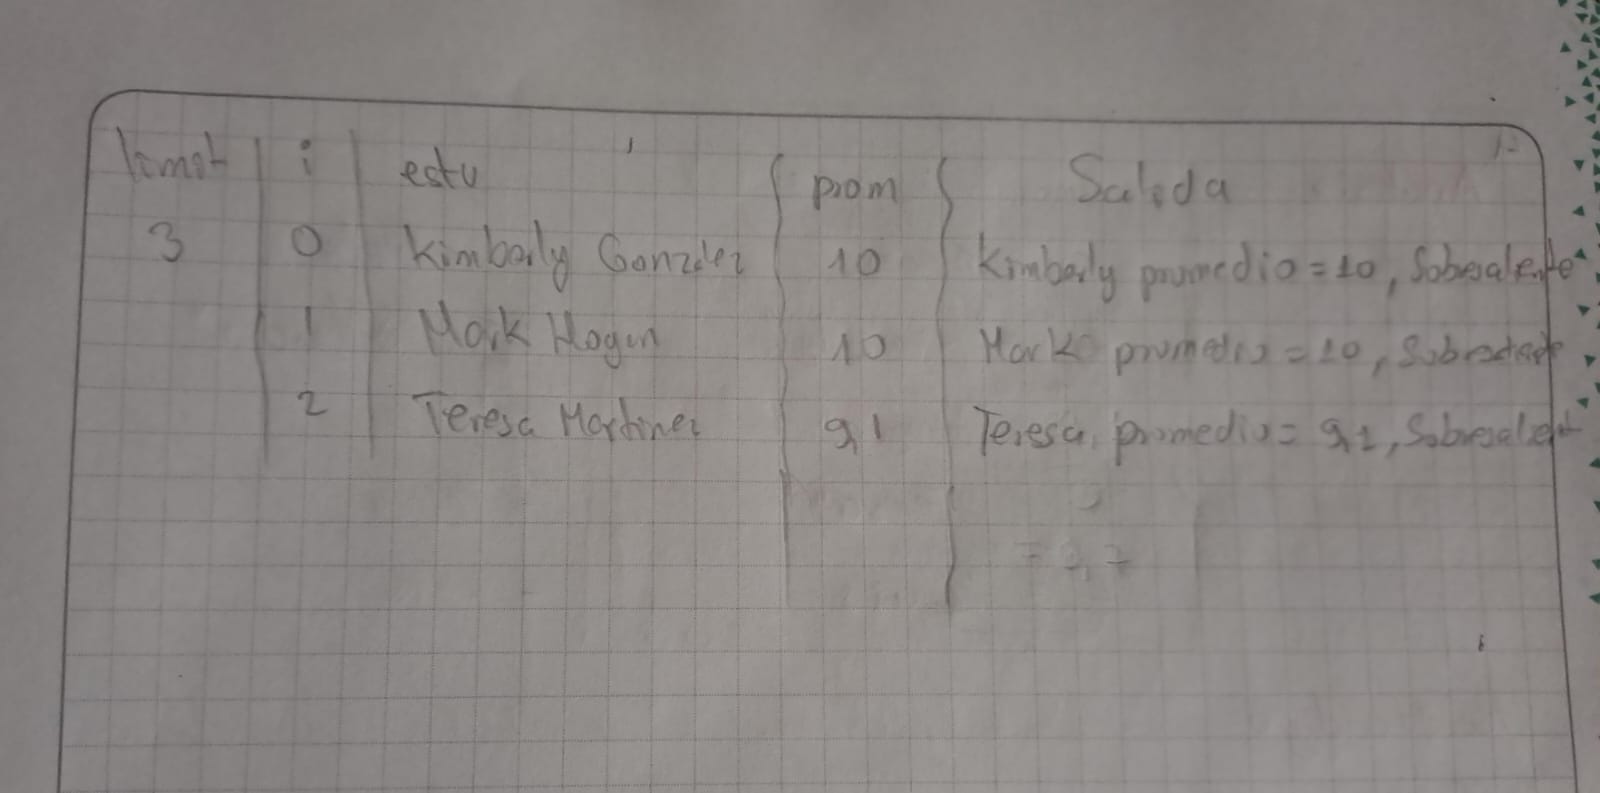 limit i estu prom Salida
3 0 Kimberly Gonzalez 10 Kimberly promedio = 10, Sobresalente
1 Mark Hogan 10 Mark promedio = 10,
2 Teresa Martinez 9,1 Teresa, promedio = 9,1, Sobresalent